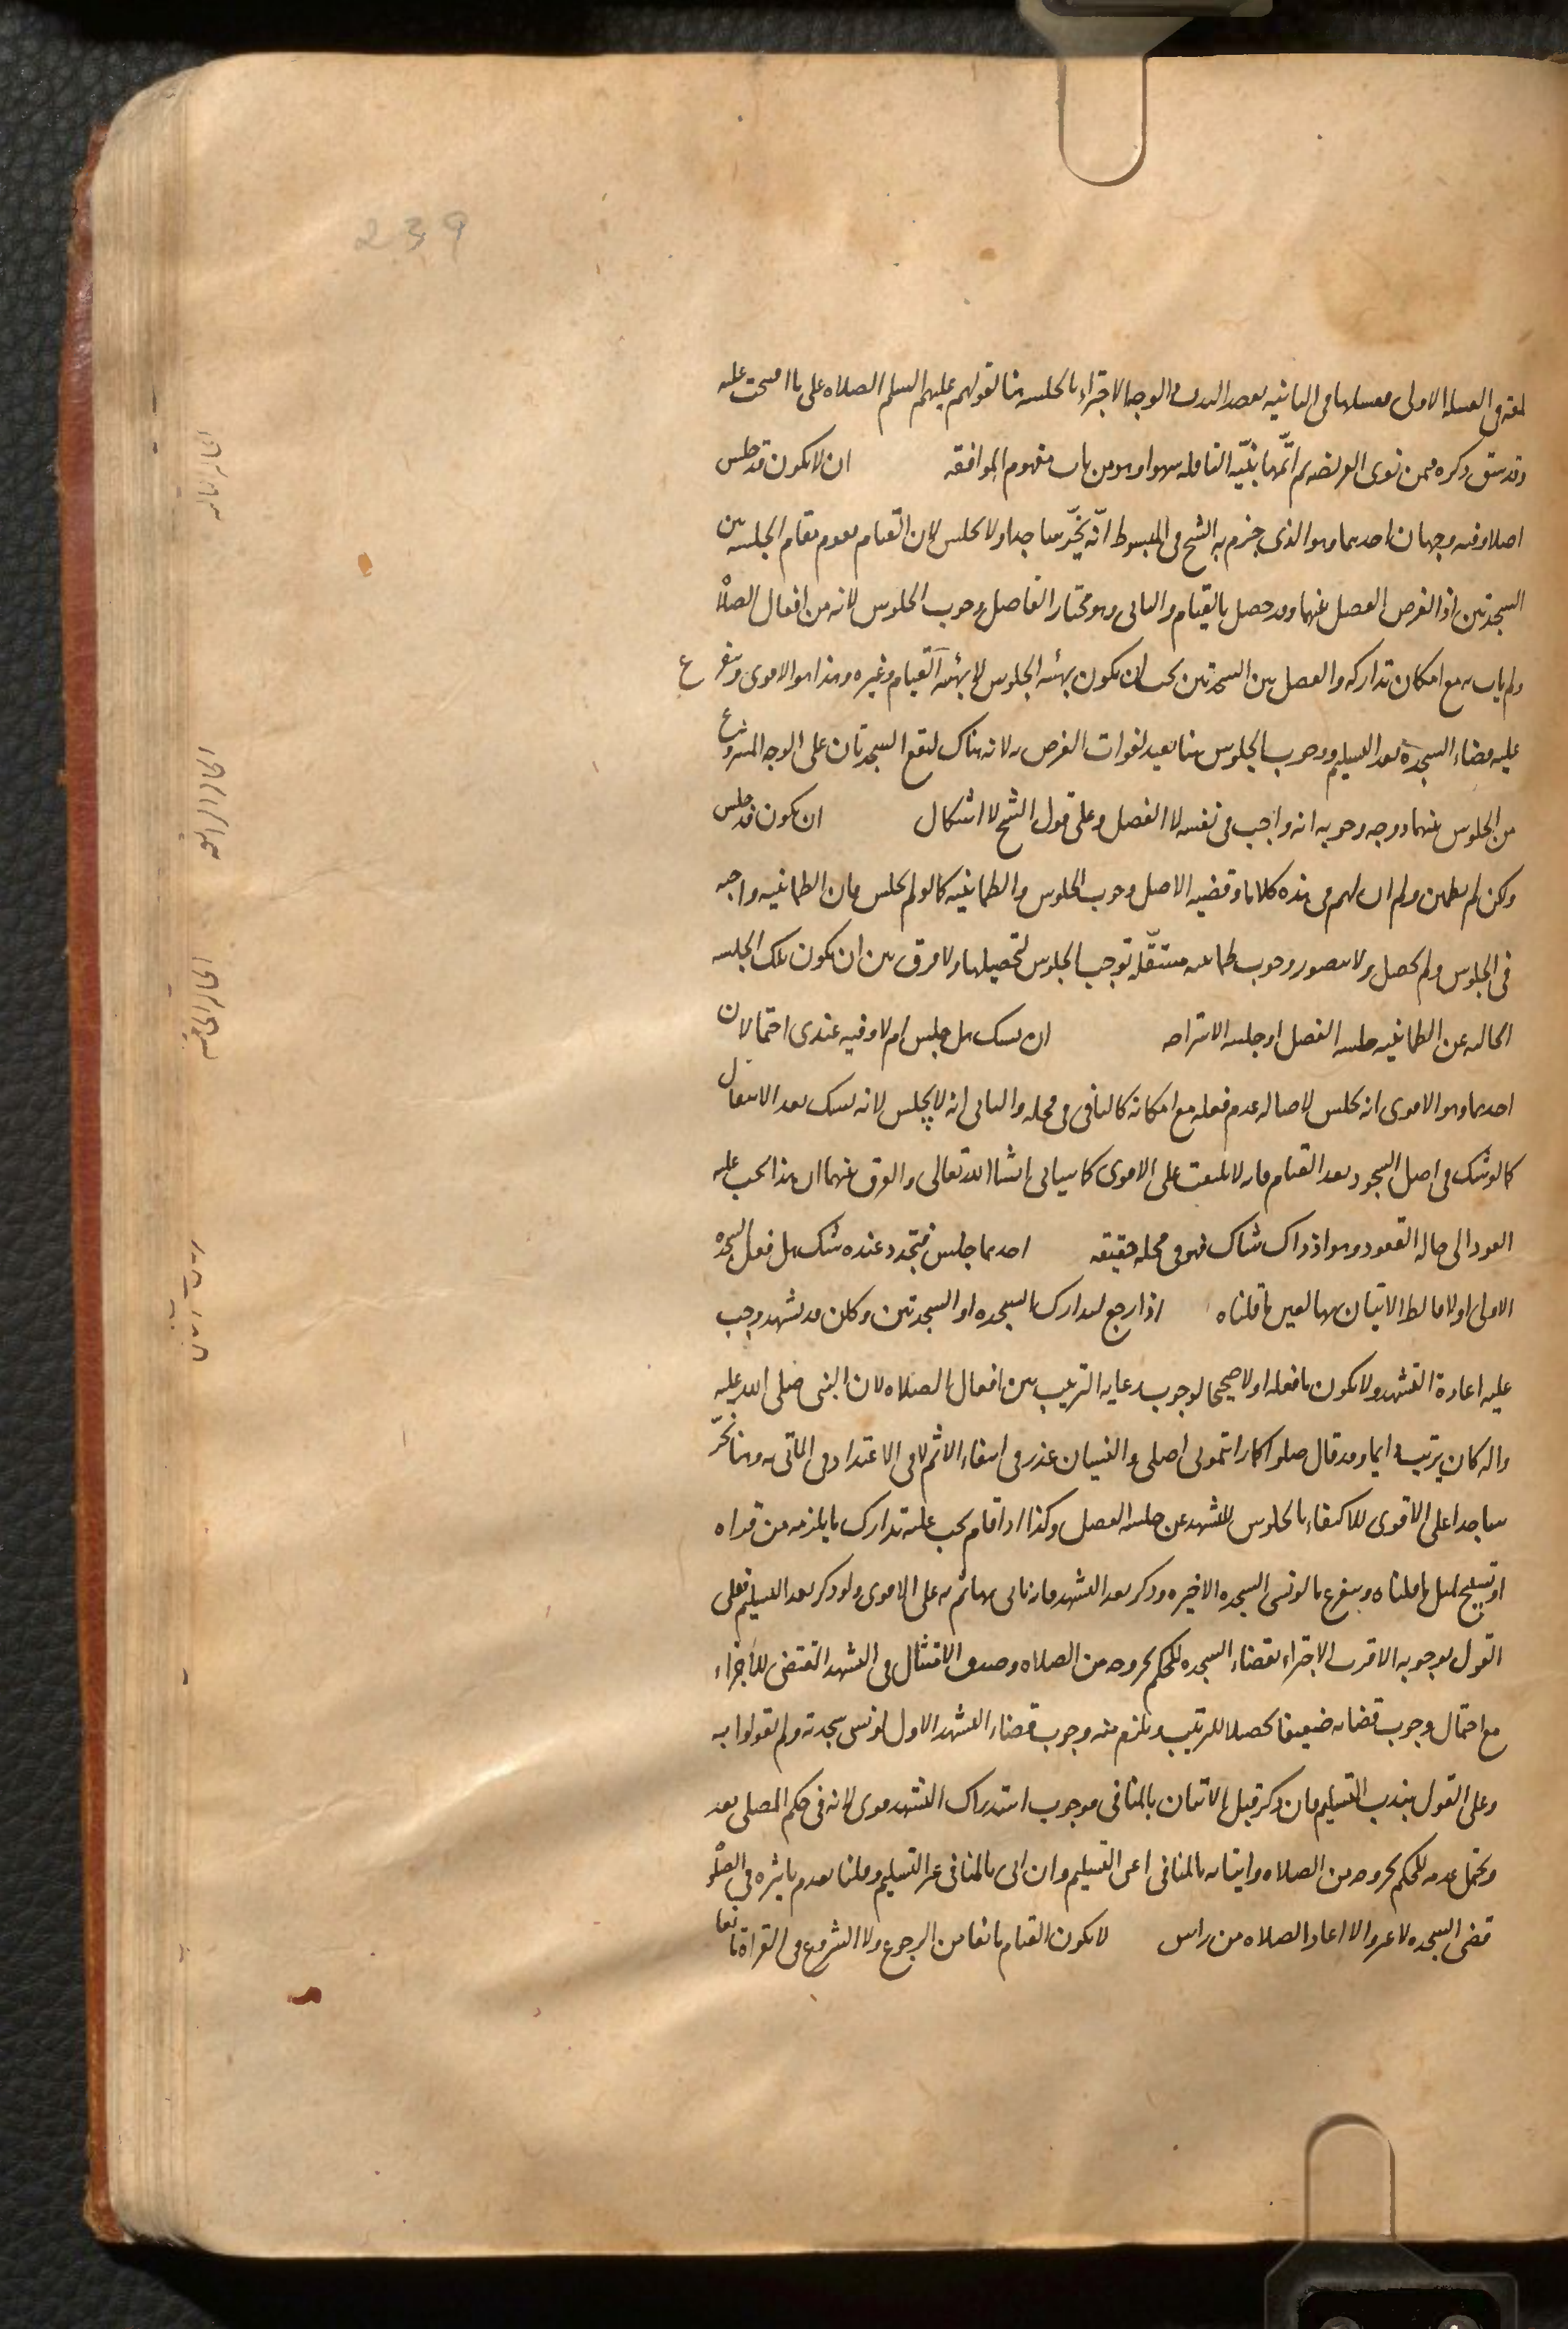 239
لمعة فى الغسلة الاولى فغسلها فى الثانية بقصد الندب والوجه الاجتزاء بالجلسة هنا لقولهم عليهم السلم الصلاه على ما افتتحت عليه
وقد سبق ذكره فيمن نوى الفريضه ثم اتمّها بنيّة النافله سهوا وهو من باب مفهوم الموافقه ان لا يكون قد جلس
اصلا وفيه وجهان احدهما وهو الذى جزم به الشيخ فى المبسوط انّه يخرّ ساجدا ولا يجلس لان القيام يقوم مقام الجلسه بين
السجدتين اذ الغرض الفصل بينهما وقد حصل بالقيام والثانى وهو مختار الفاضل وجوب الجلوس لانه من افعال الصلاة
ولم يات به مع امكان تداركه والفصل بين السجدتين يجب ان يكون بهيئه الجلوس لا بهيئه القيام وغيره وهذا هو الاقوى ويتفرع
عليه قضاء السجدة بعد التسليم ووجوب الجلوس هنا بعيد لفوات الغرض به لانه هناك لتقع السجدتان على الوجه المشروع
من الجلوس بينهما ووجه وجوبه انه واجب فى نفسه لا الفصل وعلى قول الشيخ لا اشكال ان يكون قد جلس
ولكن لم يطمئن ولم ار لهم فى هذه كلاما وقضيه الاصل وجوب الجلوس والطمانينه كما لو لم يجلس فان الطمانينه واجبه
فى الجلوس ولم يحصل ولا يتصور وجوب طمانينه مستقلّه توجب الجلوس لتحصيلها ولا فرق بين ان يكون تلك الجلسه
الخاليه عن الطمانينه جلسه الفصل او جلسه الاستراحه ان يشك هل جلس ام لا وفيه عندى احتمالان
احدهما وهو الاقوى انه يجلس لاصاله عدم فعله مع امكانه كالباقى فى محله والثانى انه لا يجلس لانه يشك بعد الانتقال
كما لو شك فى اصل السجود بعد القيام فانه لا يلتفت على الاقوى كما سياتى انشا الله تعالى والفرق بينهما ان هذا يجب عليه
العود الى حاله القعود وهو اذ ذاك شاك فهو فى محله حقيقه احدهما جلس فيتجدد عنده شك هل فعل السجده
الاولى او لا فالظ الاتيان بهما لعين ما قلناه اذا رجع لتدارك السجده او السجدتين وكان قد تشهد وجب
عليه اعادة التشهد ولا يكون ما فعله اولا صحيحا لوجوب رعايه الترتيب بين افعال الصلاه لان النبى صلى الله عليه
واله كان يرتب دايما وقد قال صلوا كما رايتمونى اصلى والنسيان عذر فى انتفاء الاثم لا فى الاعتداد فى الماتى به وهنا يخرّ
ساجدا على الاقوى للاكتفاء بالجلوس للتشهد عن جلسه الفصل وكذا اذا قام يجب عليه تدارك ما يلزمه من قراه
او تسبيح لمثل ما قلناه ويتفرع ما لو نسى السجده الاخيره وذكر بعد التشهد فانه ياتى بها ثم به على الاقوى ولو ذكر بعد التسليم فعلى
القول بوجوبه الاقرب الاجتزاء بقضاء السجده للحكم بخروجه من الصلاه وصدق الامتثال فى التشهد المقتضى للاجزاء
مع احتمال وجوب قضائه ضعيفا تحصيلا للترتيب ويلزم منه وجوب قضاء التشهد الاول لو نسى سجدته ولم يقولوا به
وعلى القول بندب التسليم فان ذكر قبل الاتيان بالمنافى فوجوب استدراك التشهد قوى لانه فى حكم المصلى بعد
ويحتمل عدمه للحكم بخروجه من الصلاه واتيانه بالمنافى اعنى التسليم وان اتى بالمنافى غير التسليم وقلنا بعدم تاثيره فى الصلوة
قضى السجده لا غير والا اعاد الصلاه من راس لا يكون القيام مانعا من الرجوع ولا الشروع فى القراة مانعا